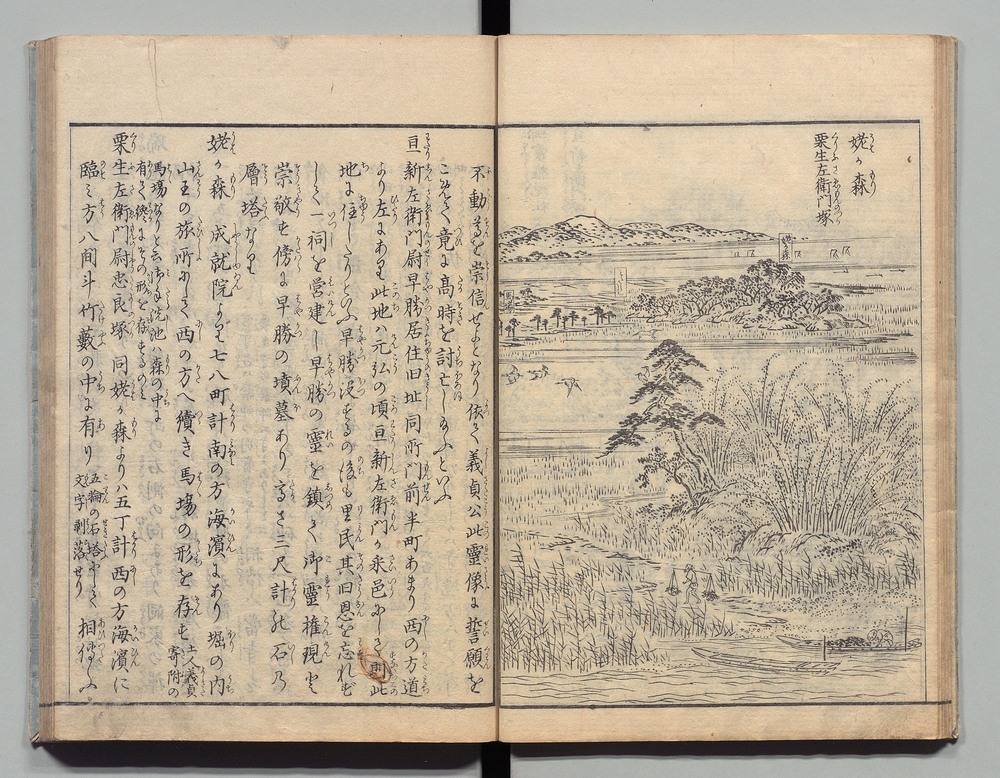 姥ヶ森
栗生左衛門塚
不動尊を崇信せしとなり依て義貞公此霊像に誓願を
こめて竟に高時を討亡し給ふといふ
亘新左衛門尉早勝居住旧址 同所門前半町あまり西の方道
より左にあり此地ハ元弘の頃亘新左衛門の采邑にして則此
地に住したりといふ早勝没するの後も里民其旧恩を忘れす
して一祠を営建し早勝の霊を鎮て御霊権現と
崇敬す傍に早勝の墳墓あり高さ二三尺計れ石乃
層塔なり
姥ヶ森 成就院より七八町計南の方海濱にあり堀の内
山王の旅所にして西の方へ續き馬場の形を存す土人義貞寄附の
馬場なりと云
栗生左衛門尉忠良塚 同姥ヶ森よりハ五丁計西の方海濱に
臨ミ方八間斗竹藪の中に有り 五輪の石塔にして文字剥落せり 相傳ふ